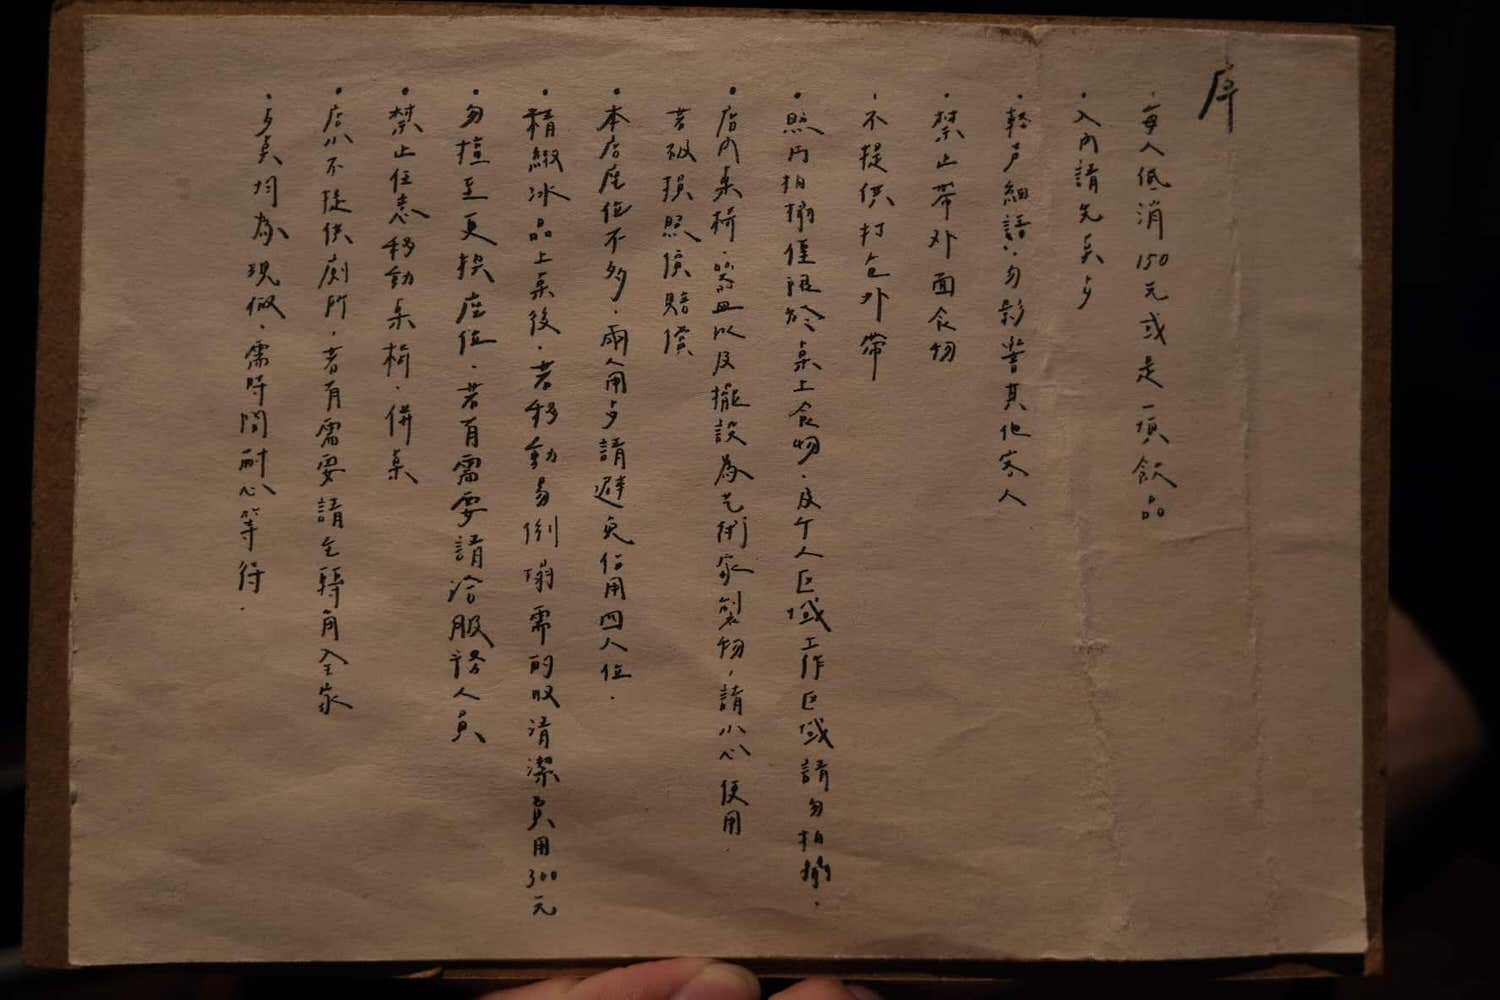 序
・每人低消150元或是一項飲品
・入內請先點
・輕聲細語,勿影響其他客人
・禁止帶外面食物
・不提供打包外帶
・照片拍攝僅限於桌上食物、及個人區域工作區域請勿拍攝。
・店內桌椅、器皿以及擺設為藝術家製物,請小心使用.
若破損照價賠償
・本店座位不多.兩人用點請避免佔用四人位.
・精緻冰品上桌後.若移動易倒塌需酌收清潔費用300元
・勿擅至更換座位.若有需要請洽服務人員
・禁止任意移動桌椅.併桌
・店小不提供廁所.若有需要請至轉角全家
・均為現做.需時間耐心等待.